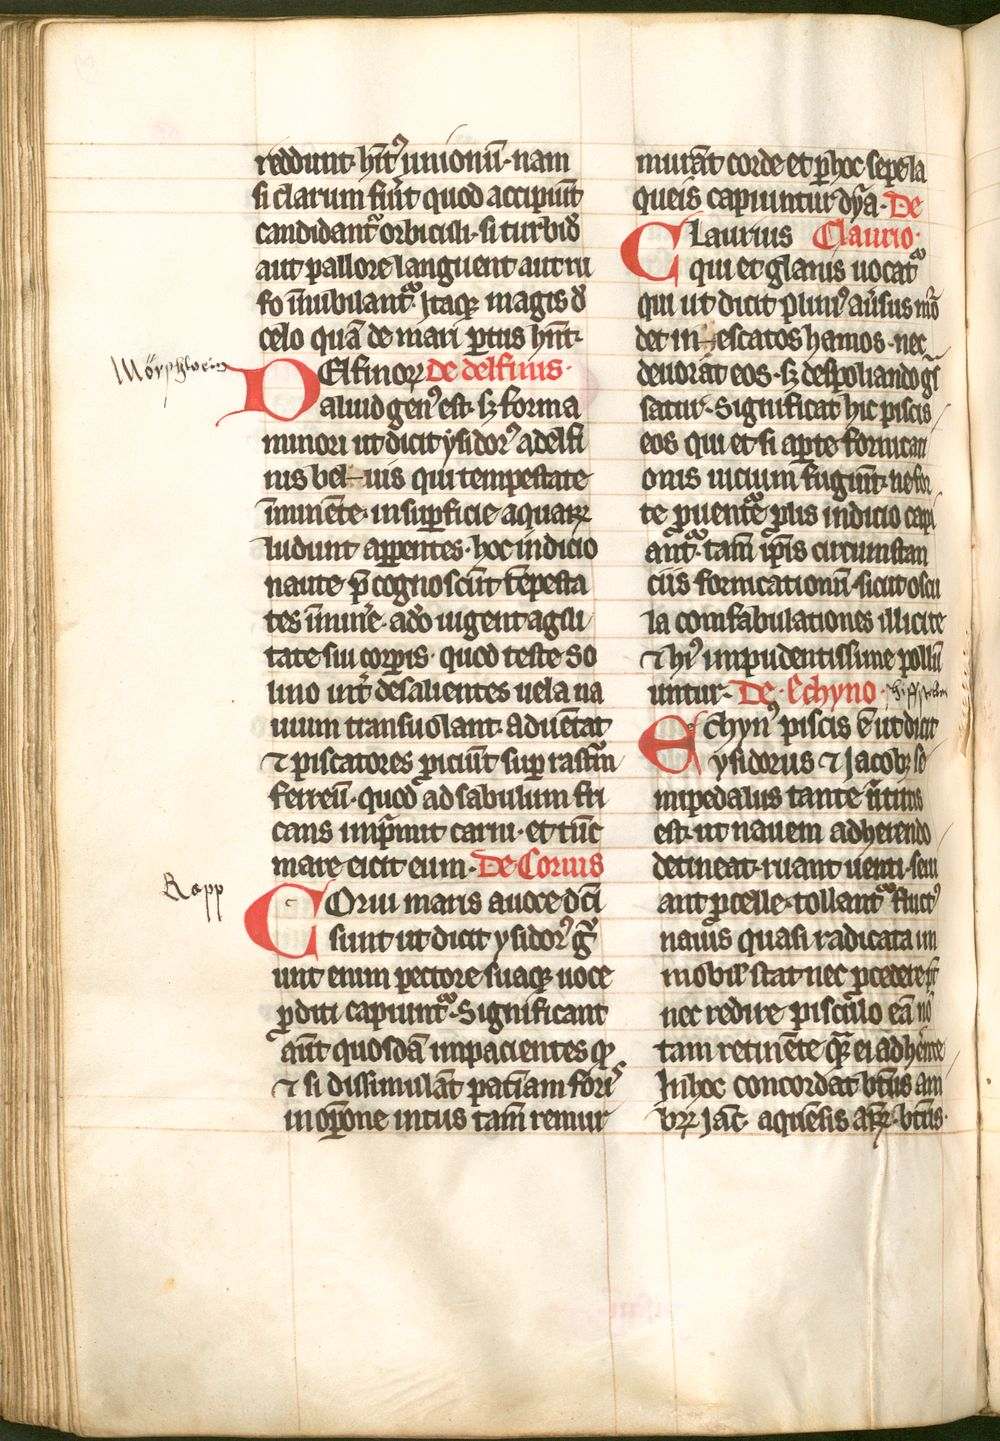 reddunt· hn̄t᷒ unionū· nam
si clarum fūt quod accipiūt
candidant᷑ orbiculi· si turbid᷒
aut pallore languent aut ru
fo īnubilant᷑· Itaqꝫ magis d᷒
celo quā de mari p̲tus hn̄t·
Mörschwein
DElfinoꝝ De delfinis·
aliud gen᷒ est· sꝫ forma
minori ut dicit ysidor᷒ a delfi
nis bel-uis qui tempestate
īminēte· in sup̲ficie aquaꝝ
ludunt apparentes· hoc indicio
naute p̄cognoscūt tēpesta
tes īmīne· ad̄o uigent agili
tate sui corp̲is· quod teste so
lino int̄ desalientes uela na
uium transuolant· aduētāt
⁊ piscatores piciūt sup̲ rastrū
ferreū· quod ad sabulum fri
cans imp̄mit cariu· et tūc
mare eicit eum· De Coruis
Rapp
COrui maris a uoce dc̄i
sunt ut dicit ysidor᷒ g̃
unt enim pectore suaqꝫ uoce
p̲diti capiunt᷑· Significant
aūt quosdā impacientes qͥ
⁊ si dissimulāt patiam fori᷒
in op̲ōne intus tam̄ remur
murāt corde et p̲ hoc sepe la
queis capiuntur dy̅a· De
CLaurius Claurio·
qui et glanis uocat᷑
qui ut dicit plini᷒ au̅sus mō
det in-escatos hamos· nec
deuorāt eos· sꝫ despoliando gͥ
satur· Significat hic piscis
eos qui et si ap̲te fornicati
onis uicium fugiūt· ne for
te p̲uent᷑e p̲lis indicio capi
ant᷑· tam̄ ip̄is circumstan
ciis fornicationū· sicut oscu
la confabulationes illicite
⁊ hi᷒ impudentissime pollū
untur· De· Echyno·
EChyn᷒ piscis ē ut dicit
ysidorus ⁊ Jacobꝫ se
mipedalus tante ūtutis
est· ut nauem adherendo
detineat· ruant uenti· seui
ant p̲celle· tollant᷑ fluct᷒
nauis quasi radicata im
mobil᷒ stat nec p̲cedere p̲t
nec redire pisculo eā nō
tam retinēte qͣ̄ ei adherēte
In hoc concordāt btūs am
brꝝ Jac̄· aquēsis ap̄r· btūs·